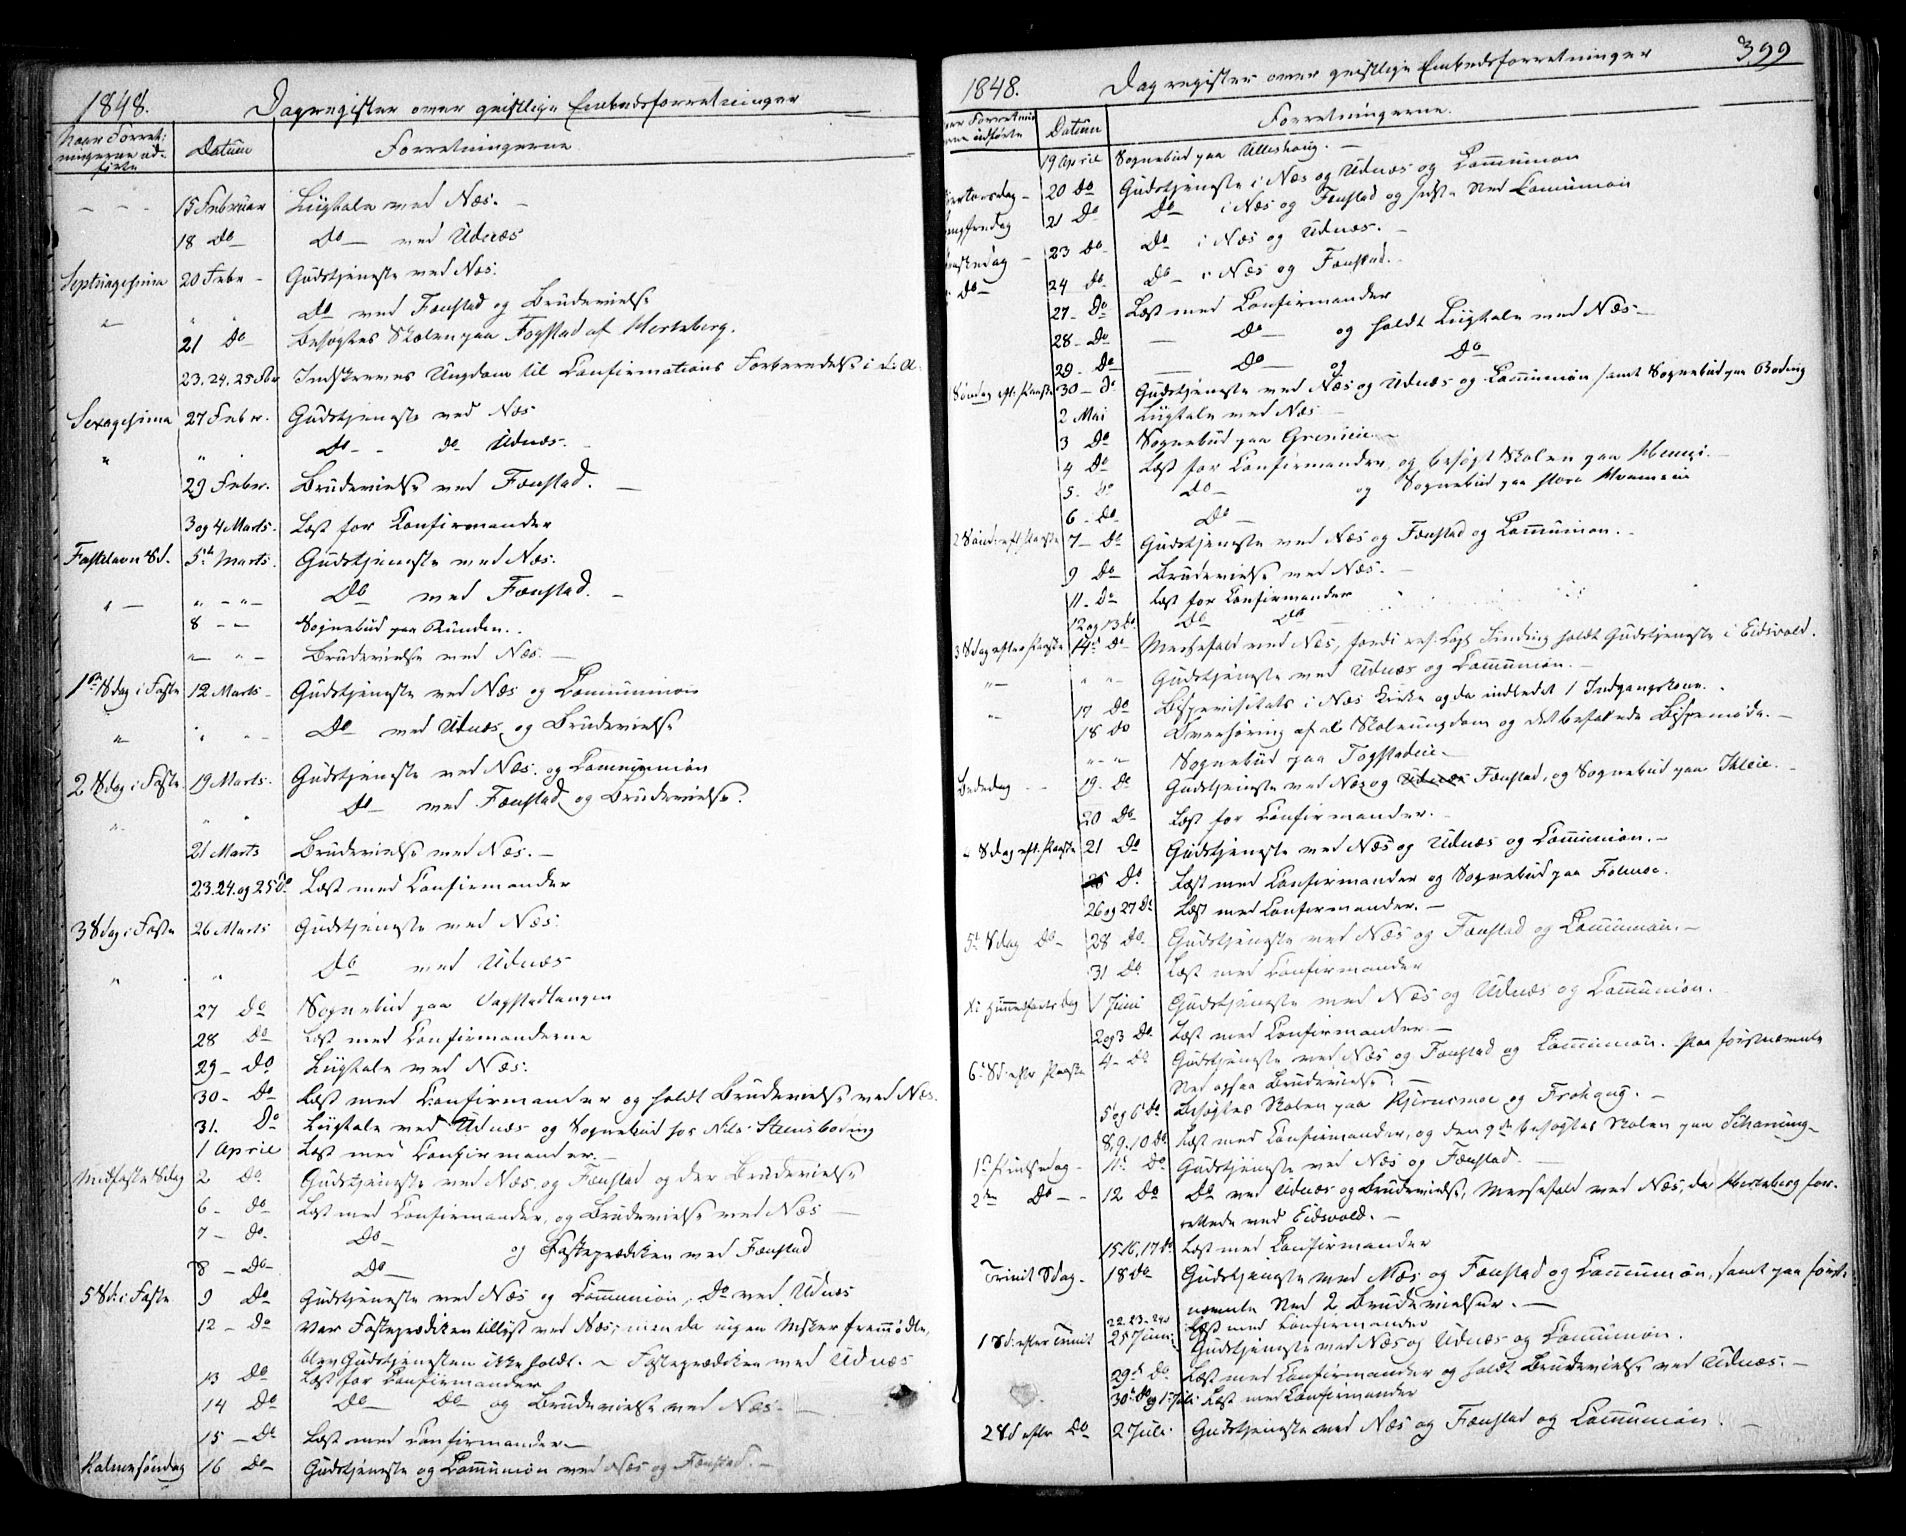 1848. Dagregister over geistlige Embedsforretninger
Naar Forret- Datum Forretningerne
ningerne ud-
førte
15 Februar Liigtale ved Næs. -
18 Do Do - ved Udnæs
Septuagesima 20 Febr - Gudstjeneste ved Næs.
Do ved Fænstad og Brudevielse
21 Do Besøgtes Skolen paa Fogstad af Hertzberg.
23. 24. 25 Fbr Indskreves Ungdom til Confirmations Forberedelse i
Sexagesima 27 Febr. Gudstjeneste ved Næs
Do - - do Udnæs. -
29 Febr. Brudevielse ved Fænstad. -
3 og 4 Marts. Læst for Confirmander
Fastelavn Sd. 5te Marts. Gudstjeneste ved Næs.
Do ved Fænstad. -
8 - - Sognebud paa Runden. .
Brudevielse ved Næs. -
1ste Sdag i Faste 12 Marts - Gudstjeneste ved Næs og Communion
Do ved Udnæs og Brudevielse
2 Sdag i Faste 19 Marts. Gudstjeneste ved Næs. og Communion
Do - ved Fænstad og Brudevielse.
21 Marts Brudevielse ved Næs. -
23. 24. og 25 Do Læst med Confirmander
3 Sdag i Faste 26 Marts Gudstjeneste ved Næs.
Do ved Udnæs
27 Do Sognebud paa Vagstadtangen
28 Do Læst med Confirmanderne
29 - Do Liigtale ved Næs.
30 - Do Læst med Confirmander og holdt Brudevielse ved Næs.
31. Do Liigtale ved Udnæs og Sognebud hos Nils Steensboding
1 April Læst med Confirmander. -
Midfaste Sdag 2 Do Gudstjeneste ved Næs og Fænstad og der Brudevielse
6 - Do Læst med Confirmander, og Brudevielse ved Næs -
7 - Do. Do - og Fasteprædiken ved Fænstad
8 - Do - Do -
5 Sd: i Faste 9 Do Gudstjeneste ved Næs og Communion, Do ved Udnæs
12 - Do Var Fasteprædiken tillyst ved Næs, men da ingen fremmødte,
blev Gudstjenesten ikke holdt. - Fasteprædiken ved Udnæs
13 Do Læst for Confirmander
14 Do Do - Do - og Brudevielse ved Næs. -
15 - Do Læst med Confirmander. -
Palmesøndag 16 Do - Gudstjeneste og Communion ved Næs og Fænstad. -
1848. Dagregister over geistlige Embedsforretninger 399
Datum Forretningerne.
udførte
19 April Sognebud paa Ulleshoug. -
20 Do Gudstjeneste i Næs og Udnæs og Communion
21 Do Do - i Næs og Fænstad og sidste Sted Communion
23 Do. Do i Næs og Udnæs. -
Do - 24 Do. Do - i Næs og Fænstad. -
27 - Do Læst med Confirmander
28 - Do - Do - og holdt Liigtale ved Næs -
29. - Do - Do og Do
Søndag eft. Paaske 30 - Do Gudstjeneste ved Næs og Udnæs og Communion samt Sognebud paa Boding
2 Mai Liigtale ved Næs -
3 Do Sognebud paa
4 Do Læst for Confirmander, og besøgt Skolen paa
5. Do Do - og Sognebud paa store
6 - Do. Do -
2 Sønd: eft Paaske 7 - Do Gudstjeneste ved Næs og Fænstad og Communion. -
9 Do Brudevielse ved Næs. -
11 - Do Læst for Confirmander
12 og 13 Do. Do Do -
3 Sdag efter Paaske 14de Do Messefald ved Næs, fordi Sinding holdt Gudstjeneste i Eidsvold.
Gudstjeneste ved Udnæs og Communion. -
17 Do Bispevisitats i Næs Kirke og da indledet 1 Indgangskone. .
18 Do Overhøring af al Skoleungdom og det befalede Bispemøde. -
Sognebud paa Fogstadeie. -
Bededag - - 19. Do Gudstjeneste ved Næs og Udnæs Fænstad, og Sognebud paa -
20 Do. Læst for Confirmander. -
4 Sdag eft. Paaske 21 Do Gudstjeneste ved Næs og Udnæs og Communion. -
25 Do Læst med Confirmander og Sognebud paa
26 og 27 Do Læst med Confirmander. -
5te Sdag Do - 28 Do. Gudstjeneste ved Næs og Fænstad og Communion. -
31 Do. Læst med Confirmander
Xi Himmelfarts Dag 1 Juni Gudstjeneste ved Næs og Udnæs og Communion.
2 og 3 Do. Læst med Confirmander. -
6te Sd: efter Paaske 4 - Do Gudstjeneste ved Næs og Fænstad og Communion. Paa førstnævnte
Sted ogsaa Brudevielse.
5 og 6 Do Besøgtes Skolen paa Kjernsmoe og Frohaug. -
8, 9. 10 Do. Læst med Confirmander, og den 9de besøgtes Skolen paa
1ste Pindsedag - 11te Do Gudstjeneste ved Næs og Fænstad -
2den Do - - 12 Do Do ved Udnæs og Brudevielse, Messefald ved Næs, da Hertzberg for-
rettede ved Eidsvold. -
15. 16, 17 Do Læst med Confirmander
Trinit Sdag. 18 Do Gudstjeneste ved Næs og Fænstad og Communion, samt paa først-
nævnte Sted 2 Brudevielser. -
22. 23 - 24 Do Læst med Confirmander
1 Sd: efter Trinit 25 Juni. Gudstjeneste ved Næs og Udnæs og Communion.
29de Do. Læst med Confirmander og holdt Brudevielse ved Udnæs. -
30te Do og 1ste Juli Læst med Confirmander
2 Sd efter Do 2 Juli. Gudstjeneste ved Næs og Fænstad og Communion. -